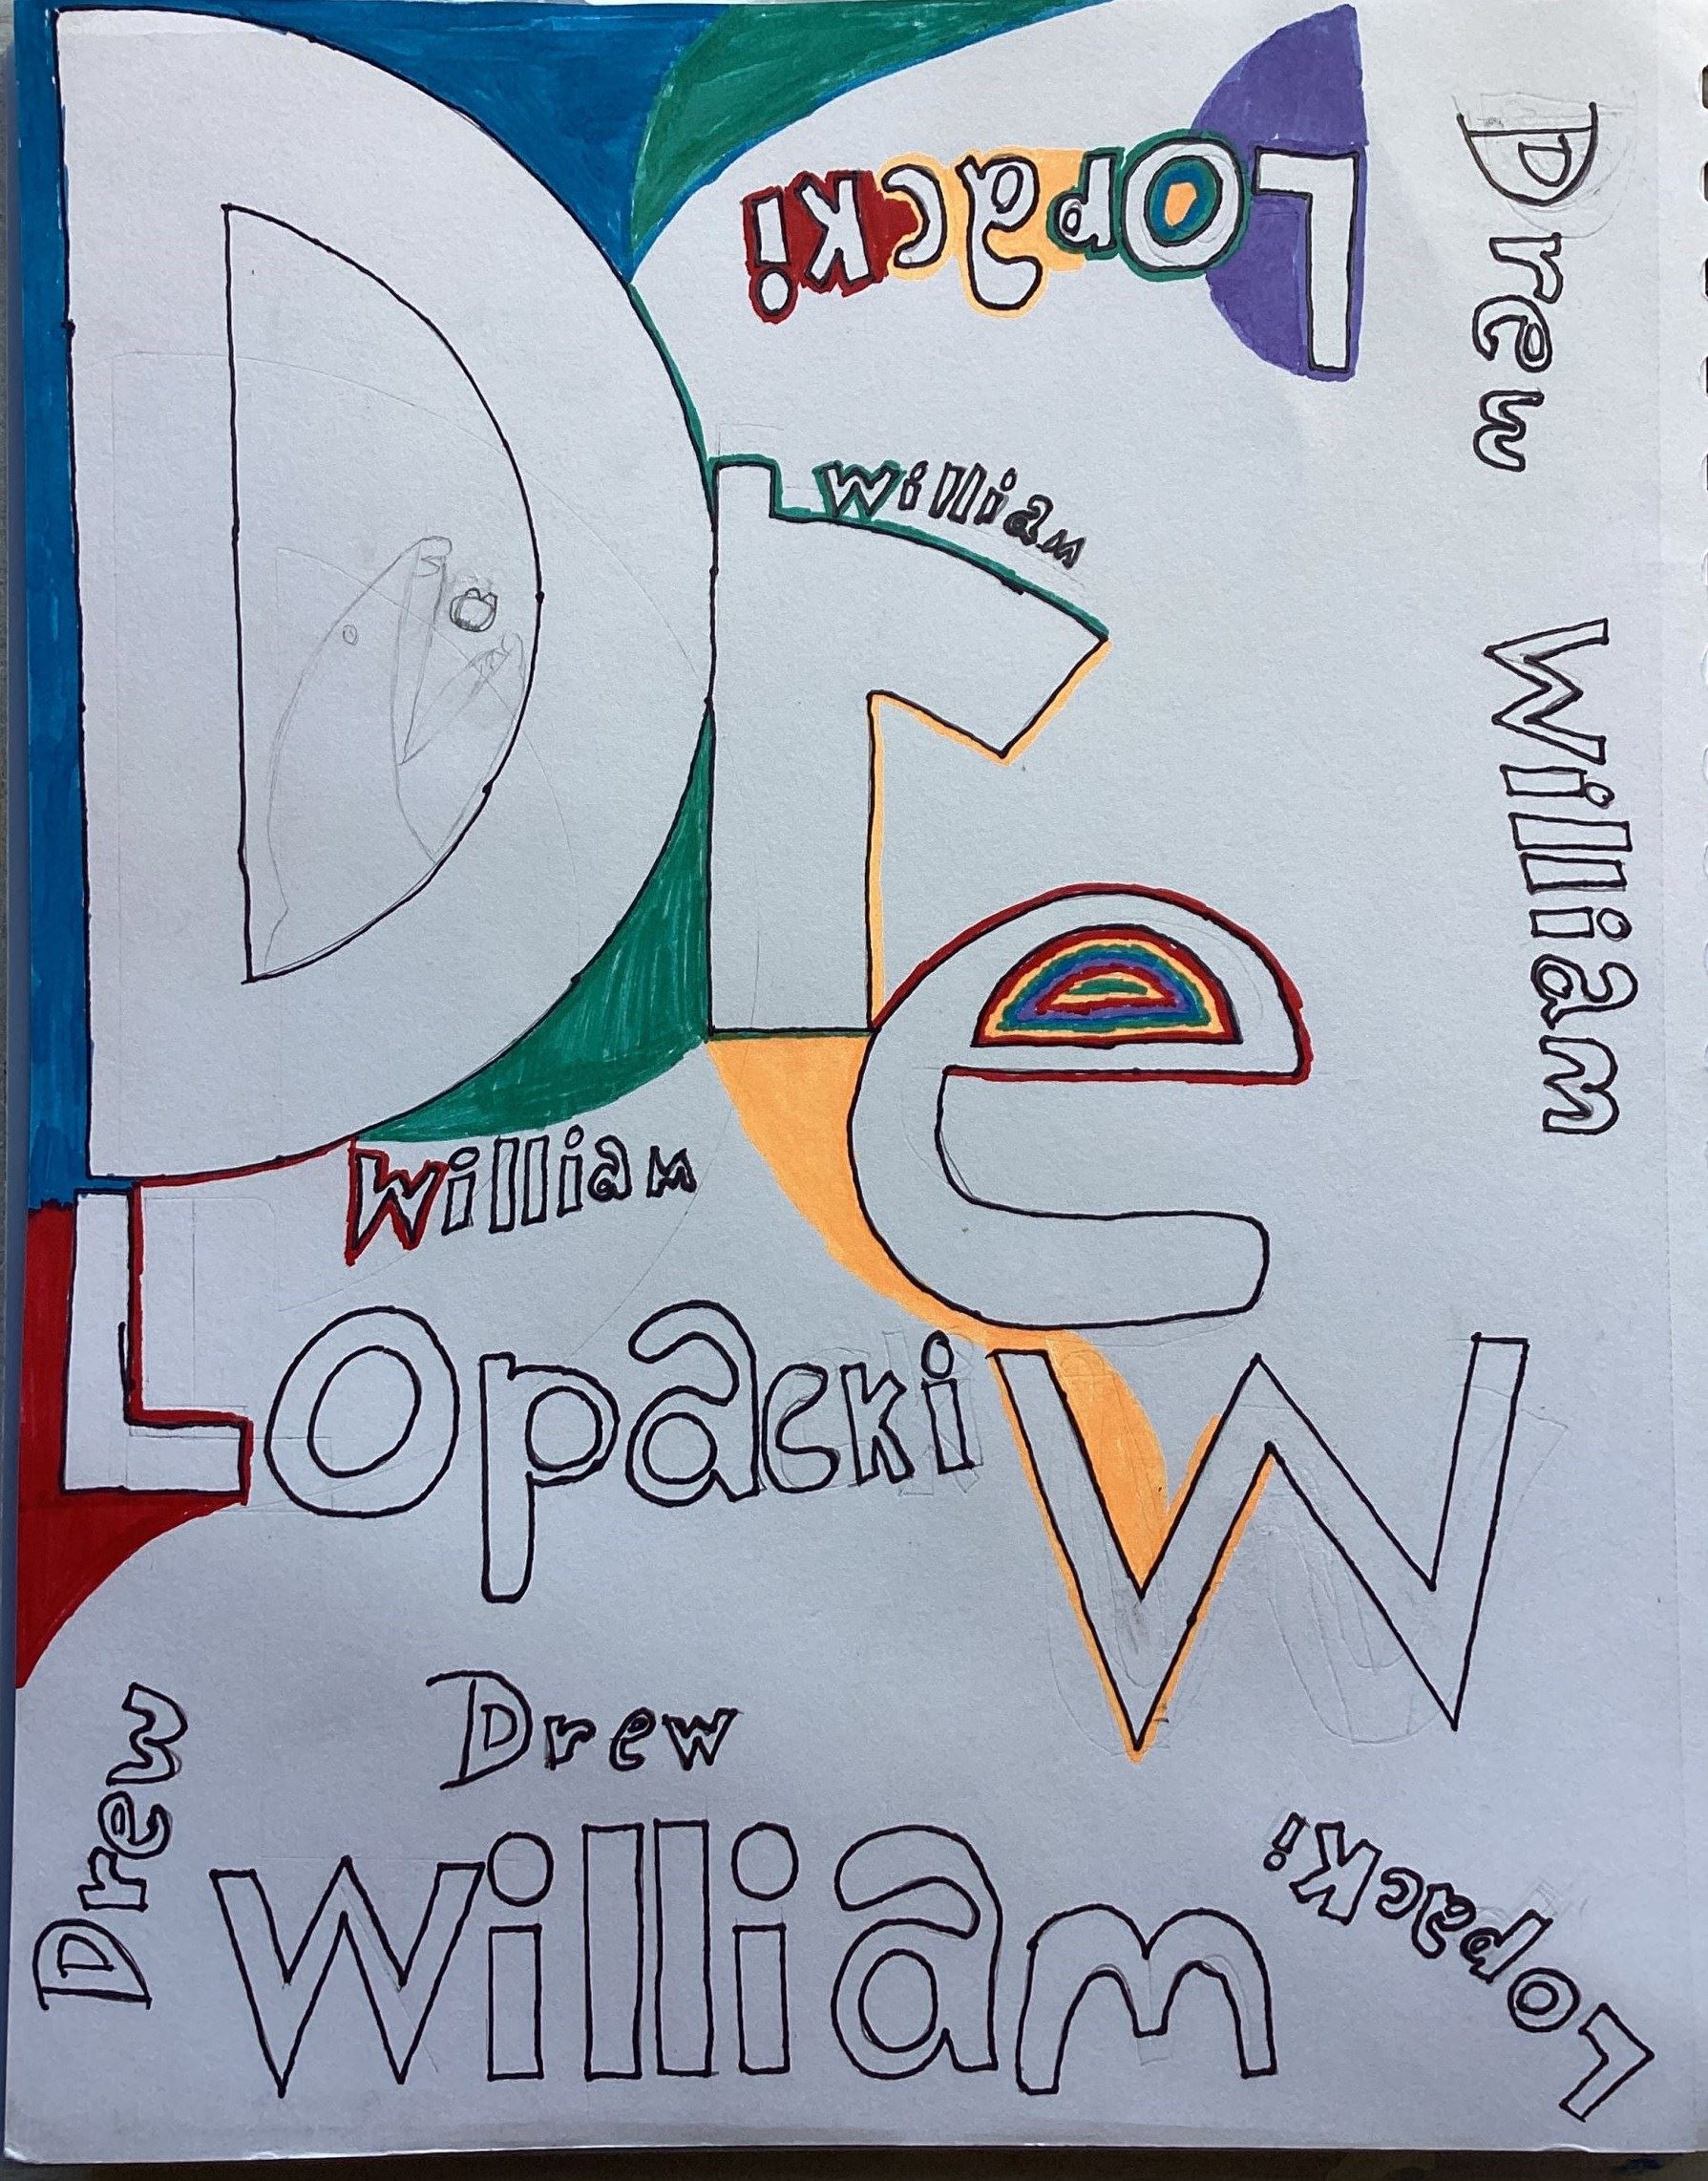 Drew
Lopacki
William
Drew
William
William
Lopacki
Drew
Drew
William
Lopacki